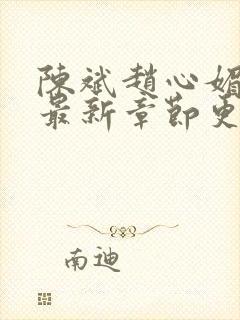 陳斌趙心媚
最新章節更
南迪